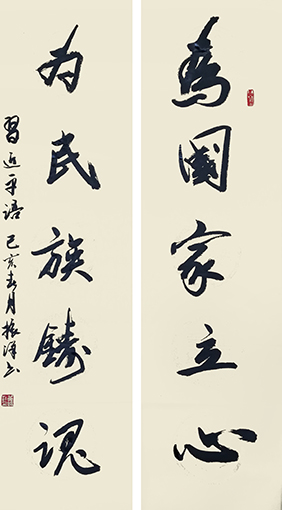 為國家立心
为民族鑄魂
習近平語 己亥春月振书